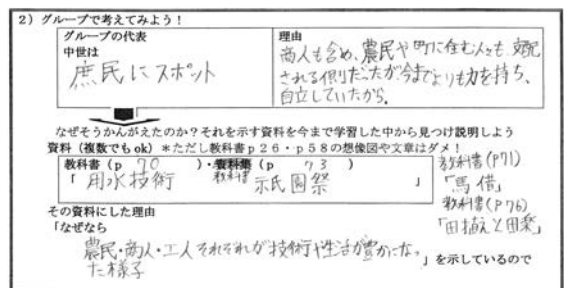 2）グループで考えてみよう！
グループの代表
中世は
庶民にスポット
理由
商人も含め、農民や町に住む人々も、支配
される側だったが今までよりも力を持ち、
自立していたから。
なぜそうかんがえたのか？それを示す資料を今まで学習した中から見つけ説明しよう
資料（複数でもok）＊ただし教科書ｐ26・ｐ58の想像図や文章はダメ！
教科書（ｐ 70 ）・資料集（ｐ 73 ）
教科書
「 用水技術 祇園祭 」
教科書(P71)
「馬借」
教科書(P76)
「田植えと田楽」
その資料にした理由
「なぜなら
農民・商人・工人それぞれが技術や生活が豊かになっ
た様子
」を示しているので